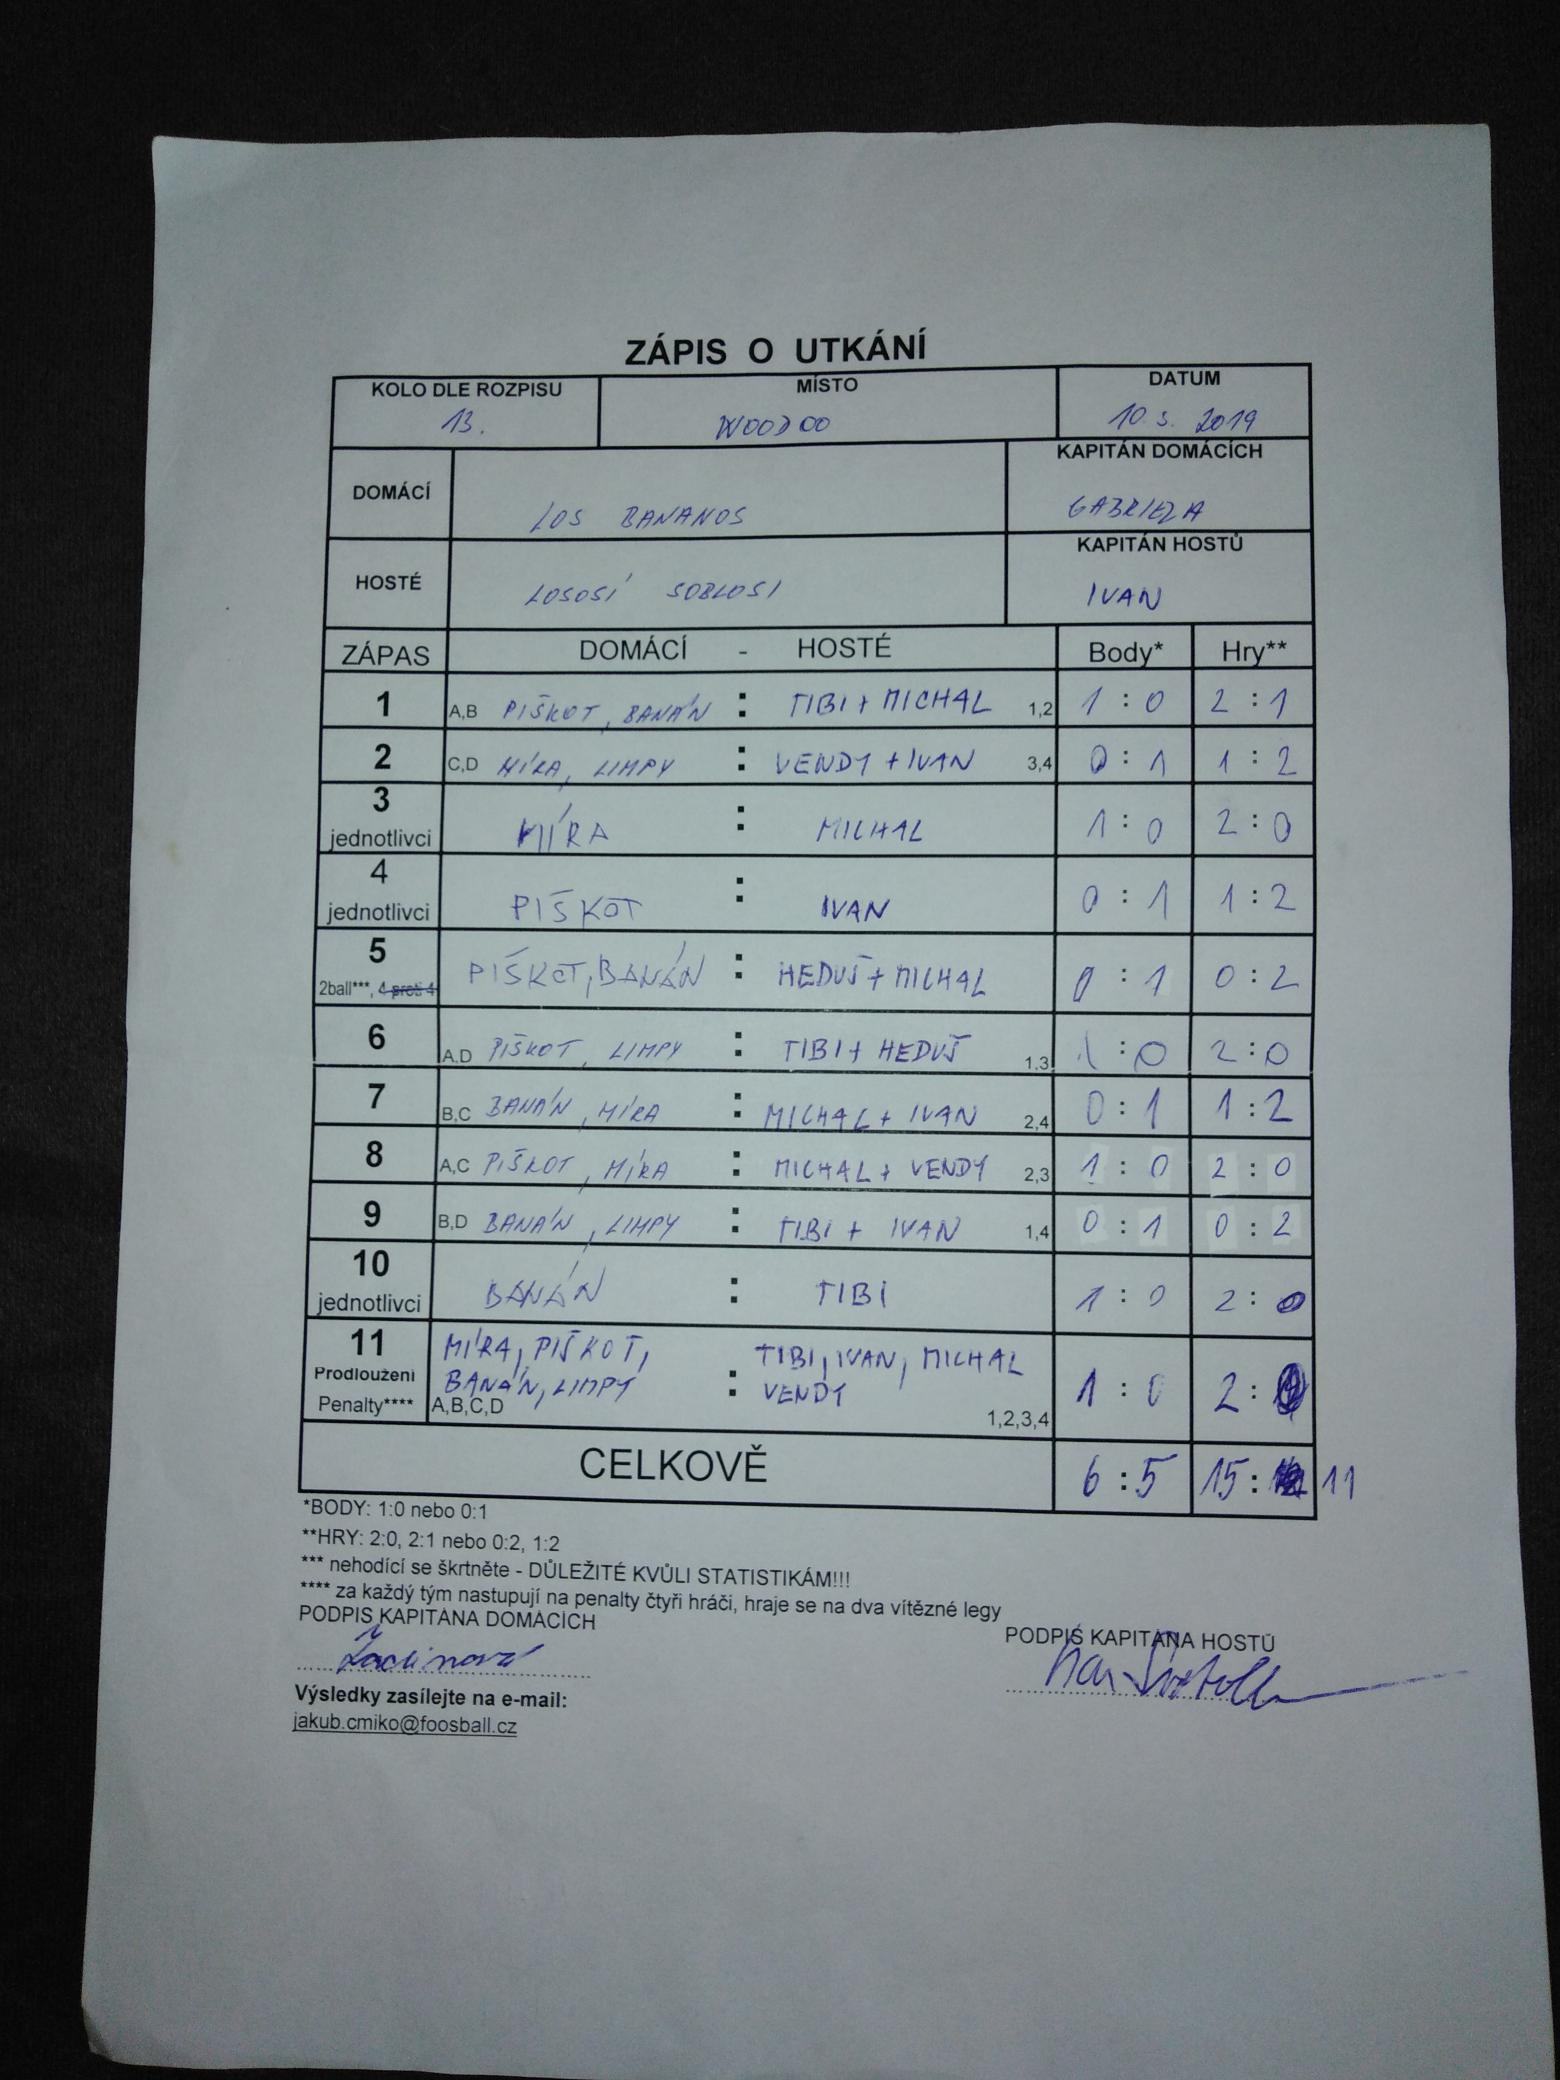 ZÁPIS O UTKÁNÍ
KOLO DLE ROZPISU MÍSTO DATUM
13. WOODOO 10. 3. 2019
DOMÁCÍ LOS BANANOS KAPITÁN DOMÁCÍCH
GABRIELA
HOSTÉ LOSOSÍ SOBLOSI KAPITÁN HOSTŮ
IVAN
ZÁPAS DOMÁCÍ - HOSTÉ Body* Hry**
1 A,B PIŠKOT, BANÁN : TIBI + MICHAL 1,2 1 : 0 2 : 1
2 C,D MÍRA, LIMPY : VENDY + IVAN 3,4 0 : 1 1 : 2
3 jednotlivci MÍRA : MICHAL 1 : 0 2 : 0
4 jednotlivci PIŠKOT : IVAN 0 : 1 1 : 2
5 2ball***, 4 proti 4 PIŠKOT, BANÁN : HEDUŠ + MICHAL 0 : 1 0 : 2
6 A,D PIŠKOT, LIMPY : TIBI + HEDUŠ 1,3 1 : 0 2 : 0
7 B,C BANÁN, MÍRA : MICHAL + IVAN 2,4 0 : 1 1 : 2
8 A,C PIŠKOT, MÍRA : MICHAL + VENDY 2,3 1 : 0 2 : 0
9 B,D BANÁN, LIMPY : TIBI + IVAN 1,4 0 : 1 0 : 2
10 jednotlivci BANÁN : TIBI 1 : 0 2 : 0
11 MÍRA, PIŠKOT, TIBI, IVAN, MICHAL
Prodloužení BANÁN, LIMPY : VENDY 1 : 0 2 :
Penalty**** A,B,C,D 1,2,3,4
CELKOVĚ 6 : 5 15 : 11
*BODY: 1:0 nebo 0:1
**HRY: 2:0, 2:1 nebo 0:2, 1:2
*** nehodící se škrtněte - DŮLEŽITÉ KVŮLI STATISTIKÁM!!!
**** za každý tým nastupují na penalty čtyři hráči, hraje se na dva vítězné legy
PODPIS KAPITÁNA DOMÁCÍCH PODPIS KAPITÁNA HOSTŮ
Výsledky zasílejte na e-mail:
jakub.cmiko@foosball.cz